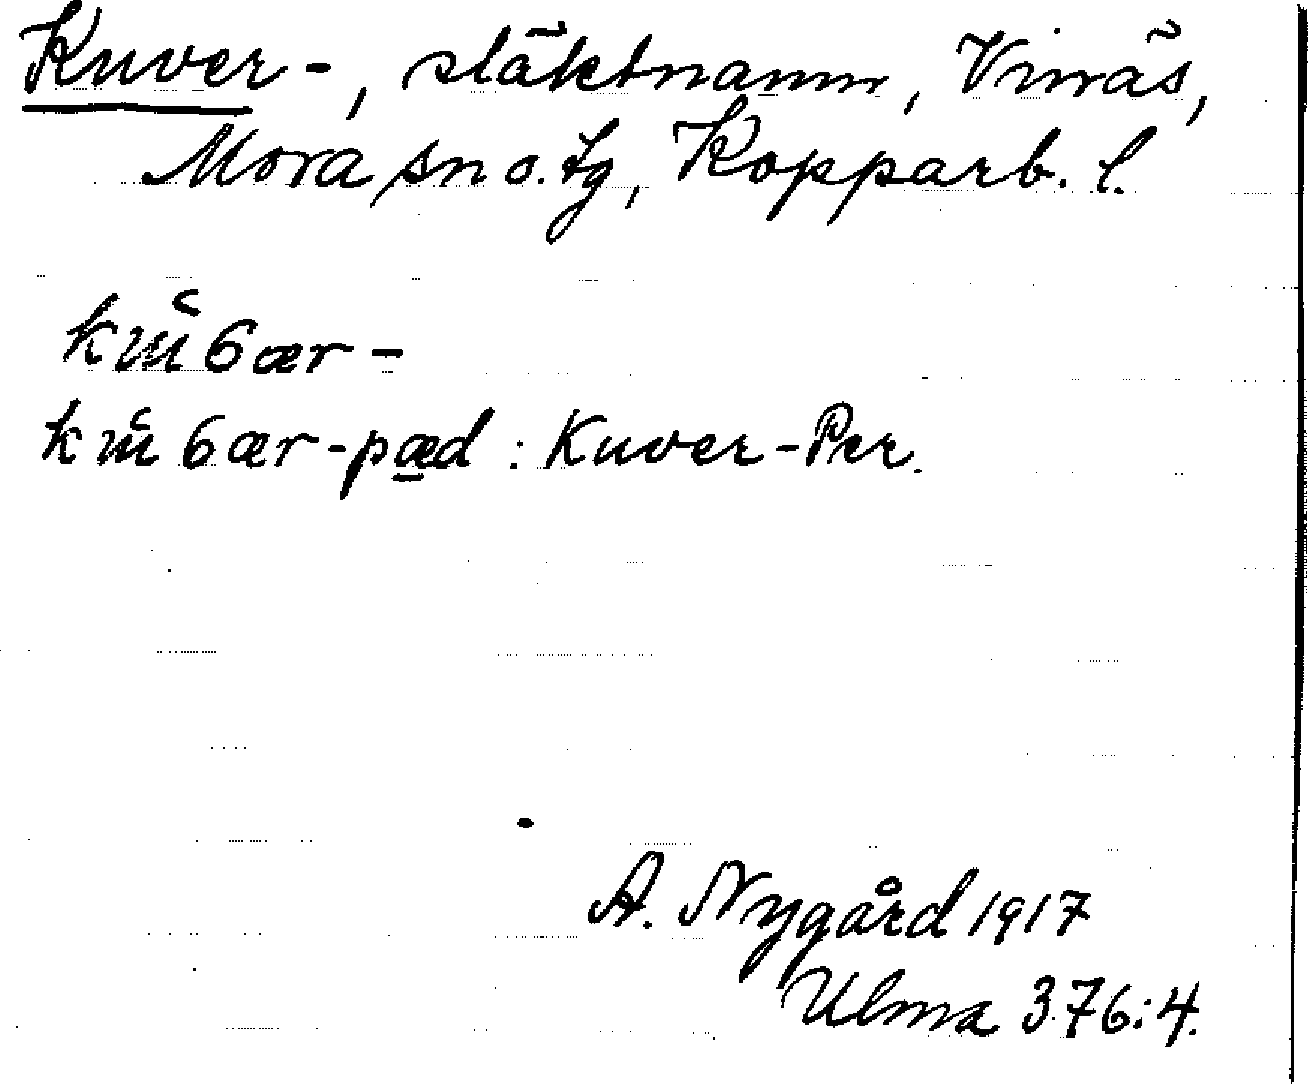 Kuver-, släktnamn, Vinäs,
Mora sn o. tg, Kopparb. l.
kŭ6ær-
kŭ6ær-pæd : Kuver-Per.
A. Nygård 1917
Ulma 376:4.